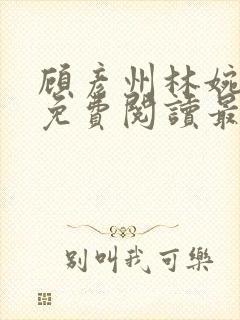 顾彦州林婉
免費閱讀最
别叫我可樂